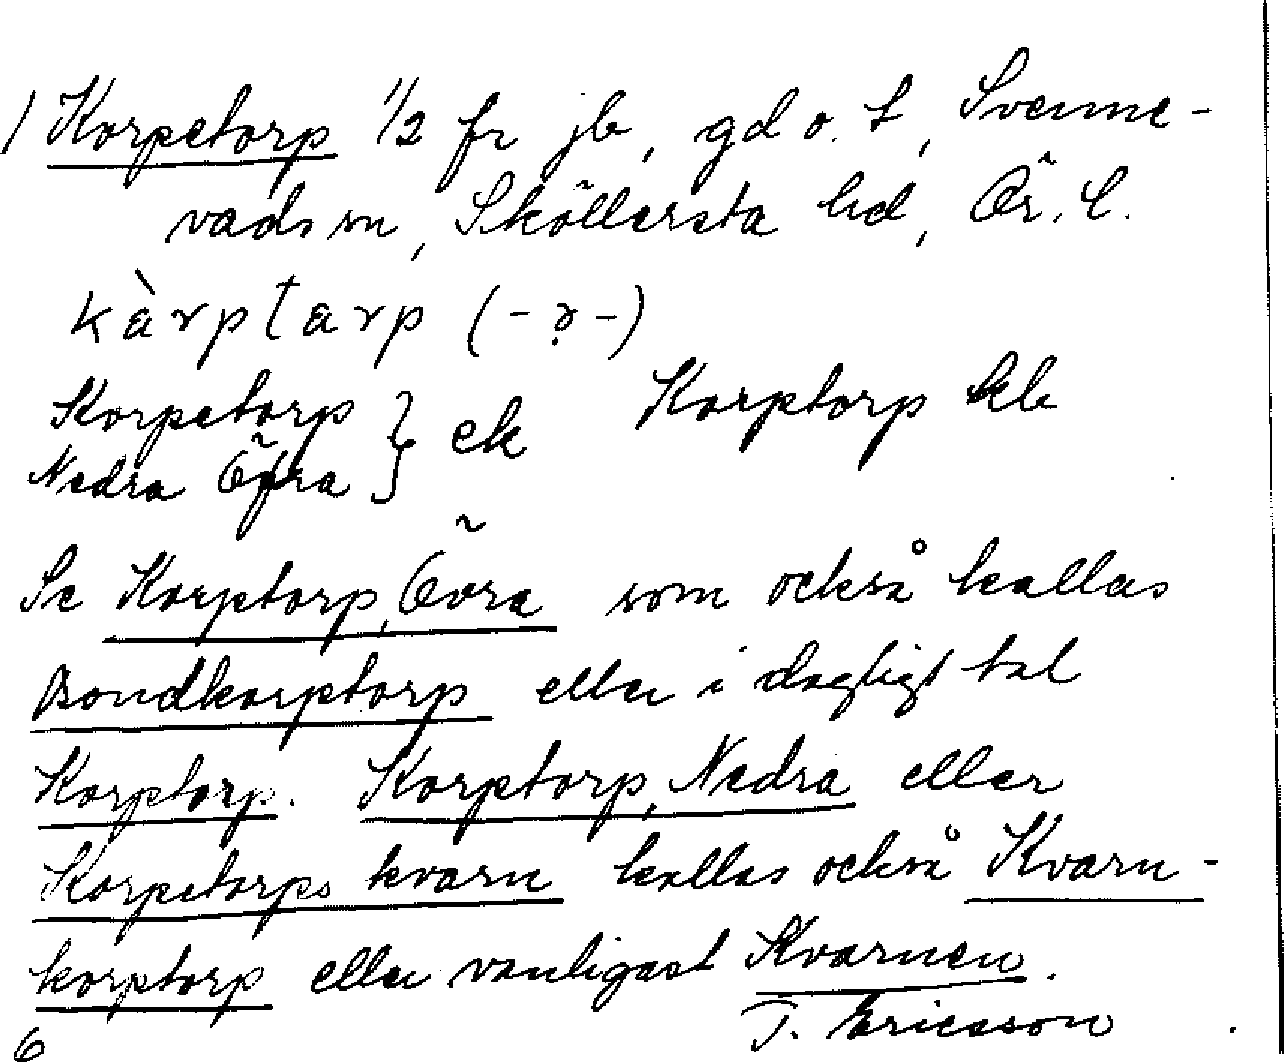 1 Korpetorp 1/2 fr jb, gd o. t, Svenne-
vads sn, Sköllersta hd, Ör. l.
kàrptarp (-ə-)
Korpetorp } ek Korptorp kb
Nedra Öfra
Se Korptorp, Övra som också kallas
Bondkorptorp eller i dagligt tal
Korptorp. Korptorp, Nedra eller
Korpetorps kvarn kallas också Kvarn-
korptorp eller vanligast Kvarnen.
T. Ericsson
6